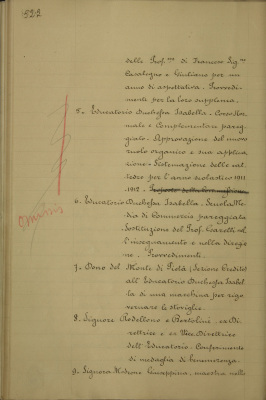 1523
delle Prof.sse di Francese Sig.re
Casalegno e Giuliano per un
anno di aspettativa. Provvedi-
menti per la loro supplenza.
5. Educatorio Duchessa Isabella. Corso Nor-
male e Complementare pareg-
giato. Approvazione del nuovo
ruolo organico e sua applica-
zione. Sistemazione delle cat-
tedre per l'anno scolastico 1911
1912.
omissis
6. Educatorio Duchessa Isabella. Scuola Me-
dia di Commercio pareggiata
Sostituzione del Prof.
l'insegnamento e nella direzio-
ne. Provvedimenti.
7. Dono del Monte di Pietà (Sezione Credito)
all'Educatorio Duchessa Isabel-
la di una macchina per rigo-
vernare le stoviglie.
8. Signore Rodellono e Bertolini ex Di-
rettrice e ex Vice Direttrice
dell'Educatorio. Conferimento
di medaglia di benemerenza.
9. Signora Giuseppina, maestra nelle